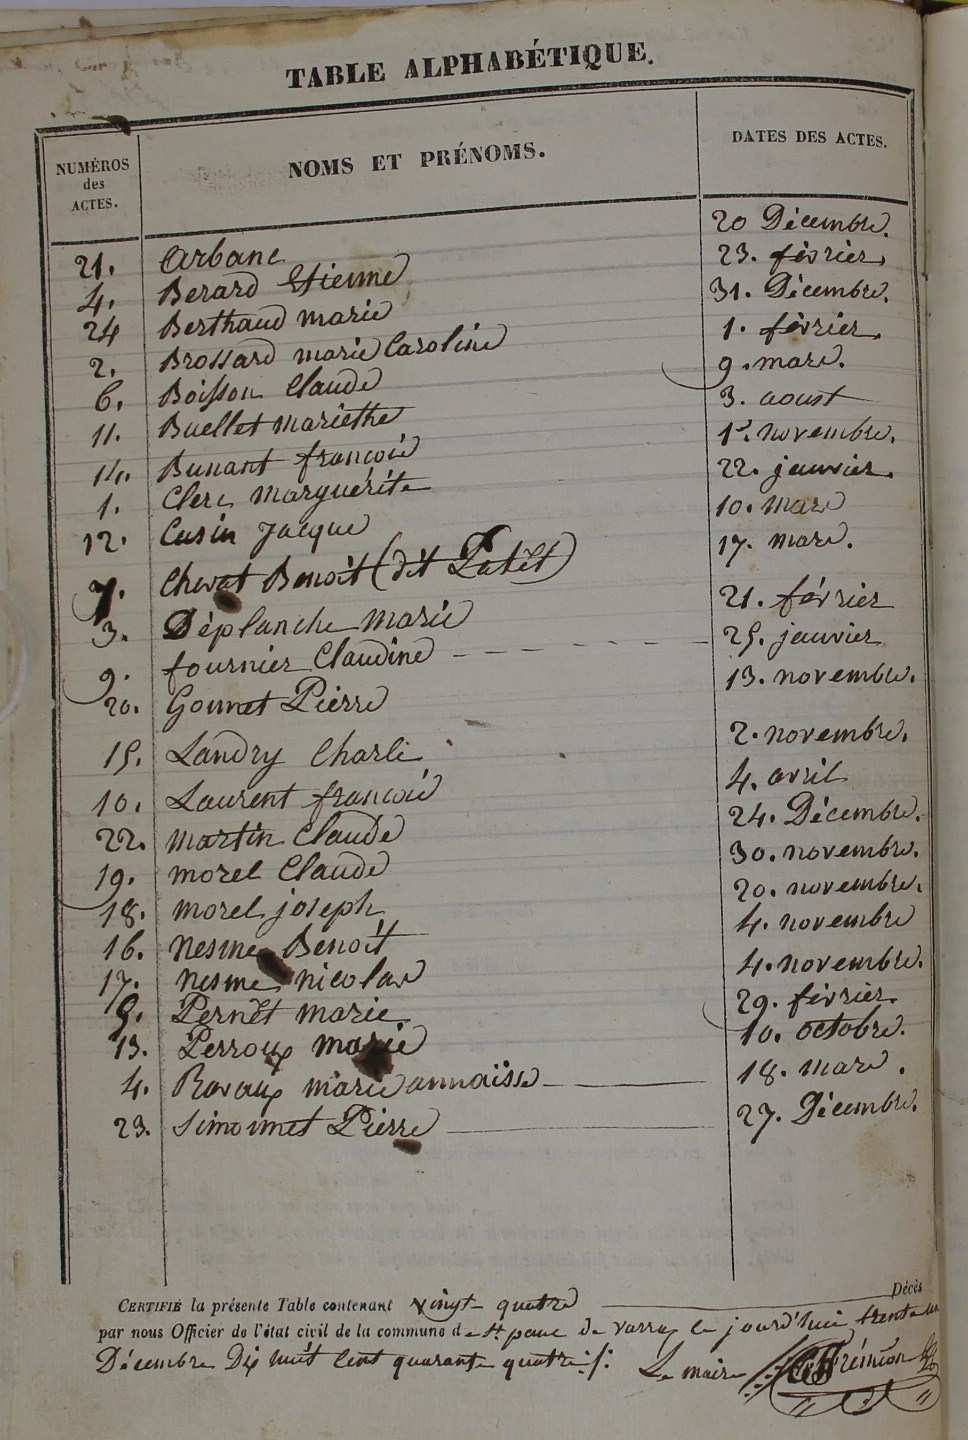 TABLE ALPHABÉTIQUE.
NUMÉROS des ACTES. NOMS ET PRÉNOMS. DATES DES ACTES.
21. Arbane 20 Décembre.
4. Berard Etienne 23. février.
24 Berthaud marie 31. Décembre.
2. Brossard marie Caroline 1. février.
6. Boisson Claude 9. mars.
11. Buellet mariethe 3. aoust
14. Bunant françois 1er. novembre.
1. Clerc Marguérite 22. janvier.
12. Cusin Jacque 10. mars
7. Chevat Benoit (dit Patêt) 17. mars.
3. Déplanche Marie 21. février
9. fournier Claudine 25. janvier
20. Gonnet Pierre 13. novembre.
15. Landry Charle 2. novembre.
10. Laurent françois 4. avril
22. martin Claude 24. Décembre.
19. morel Claude 30. novembre.
18. morel joseph 20. novembre.
16. Nesme Benoit 4. novembre
17. Nesme nicolas 4. novembre.
5. Pernêt marie 29. février.
13. Perroux marie 10. octobre.
4. Ravaux marie annaisse 18. mars.
23. Simonnet Pierre 27. Décembre.
CERTIFIÉ la présente Table contenant vingt quatre Décès
par nous Officier de l'état civil de la commune de St. paul de varax le jourd'hui trente un
Décembre Dix huit Cent quarante quatre ./.
Le maire